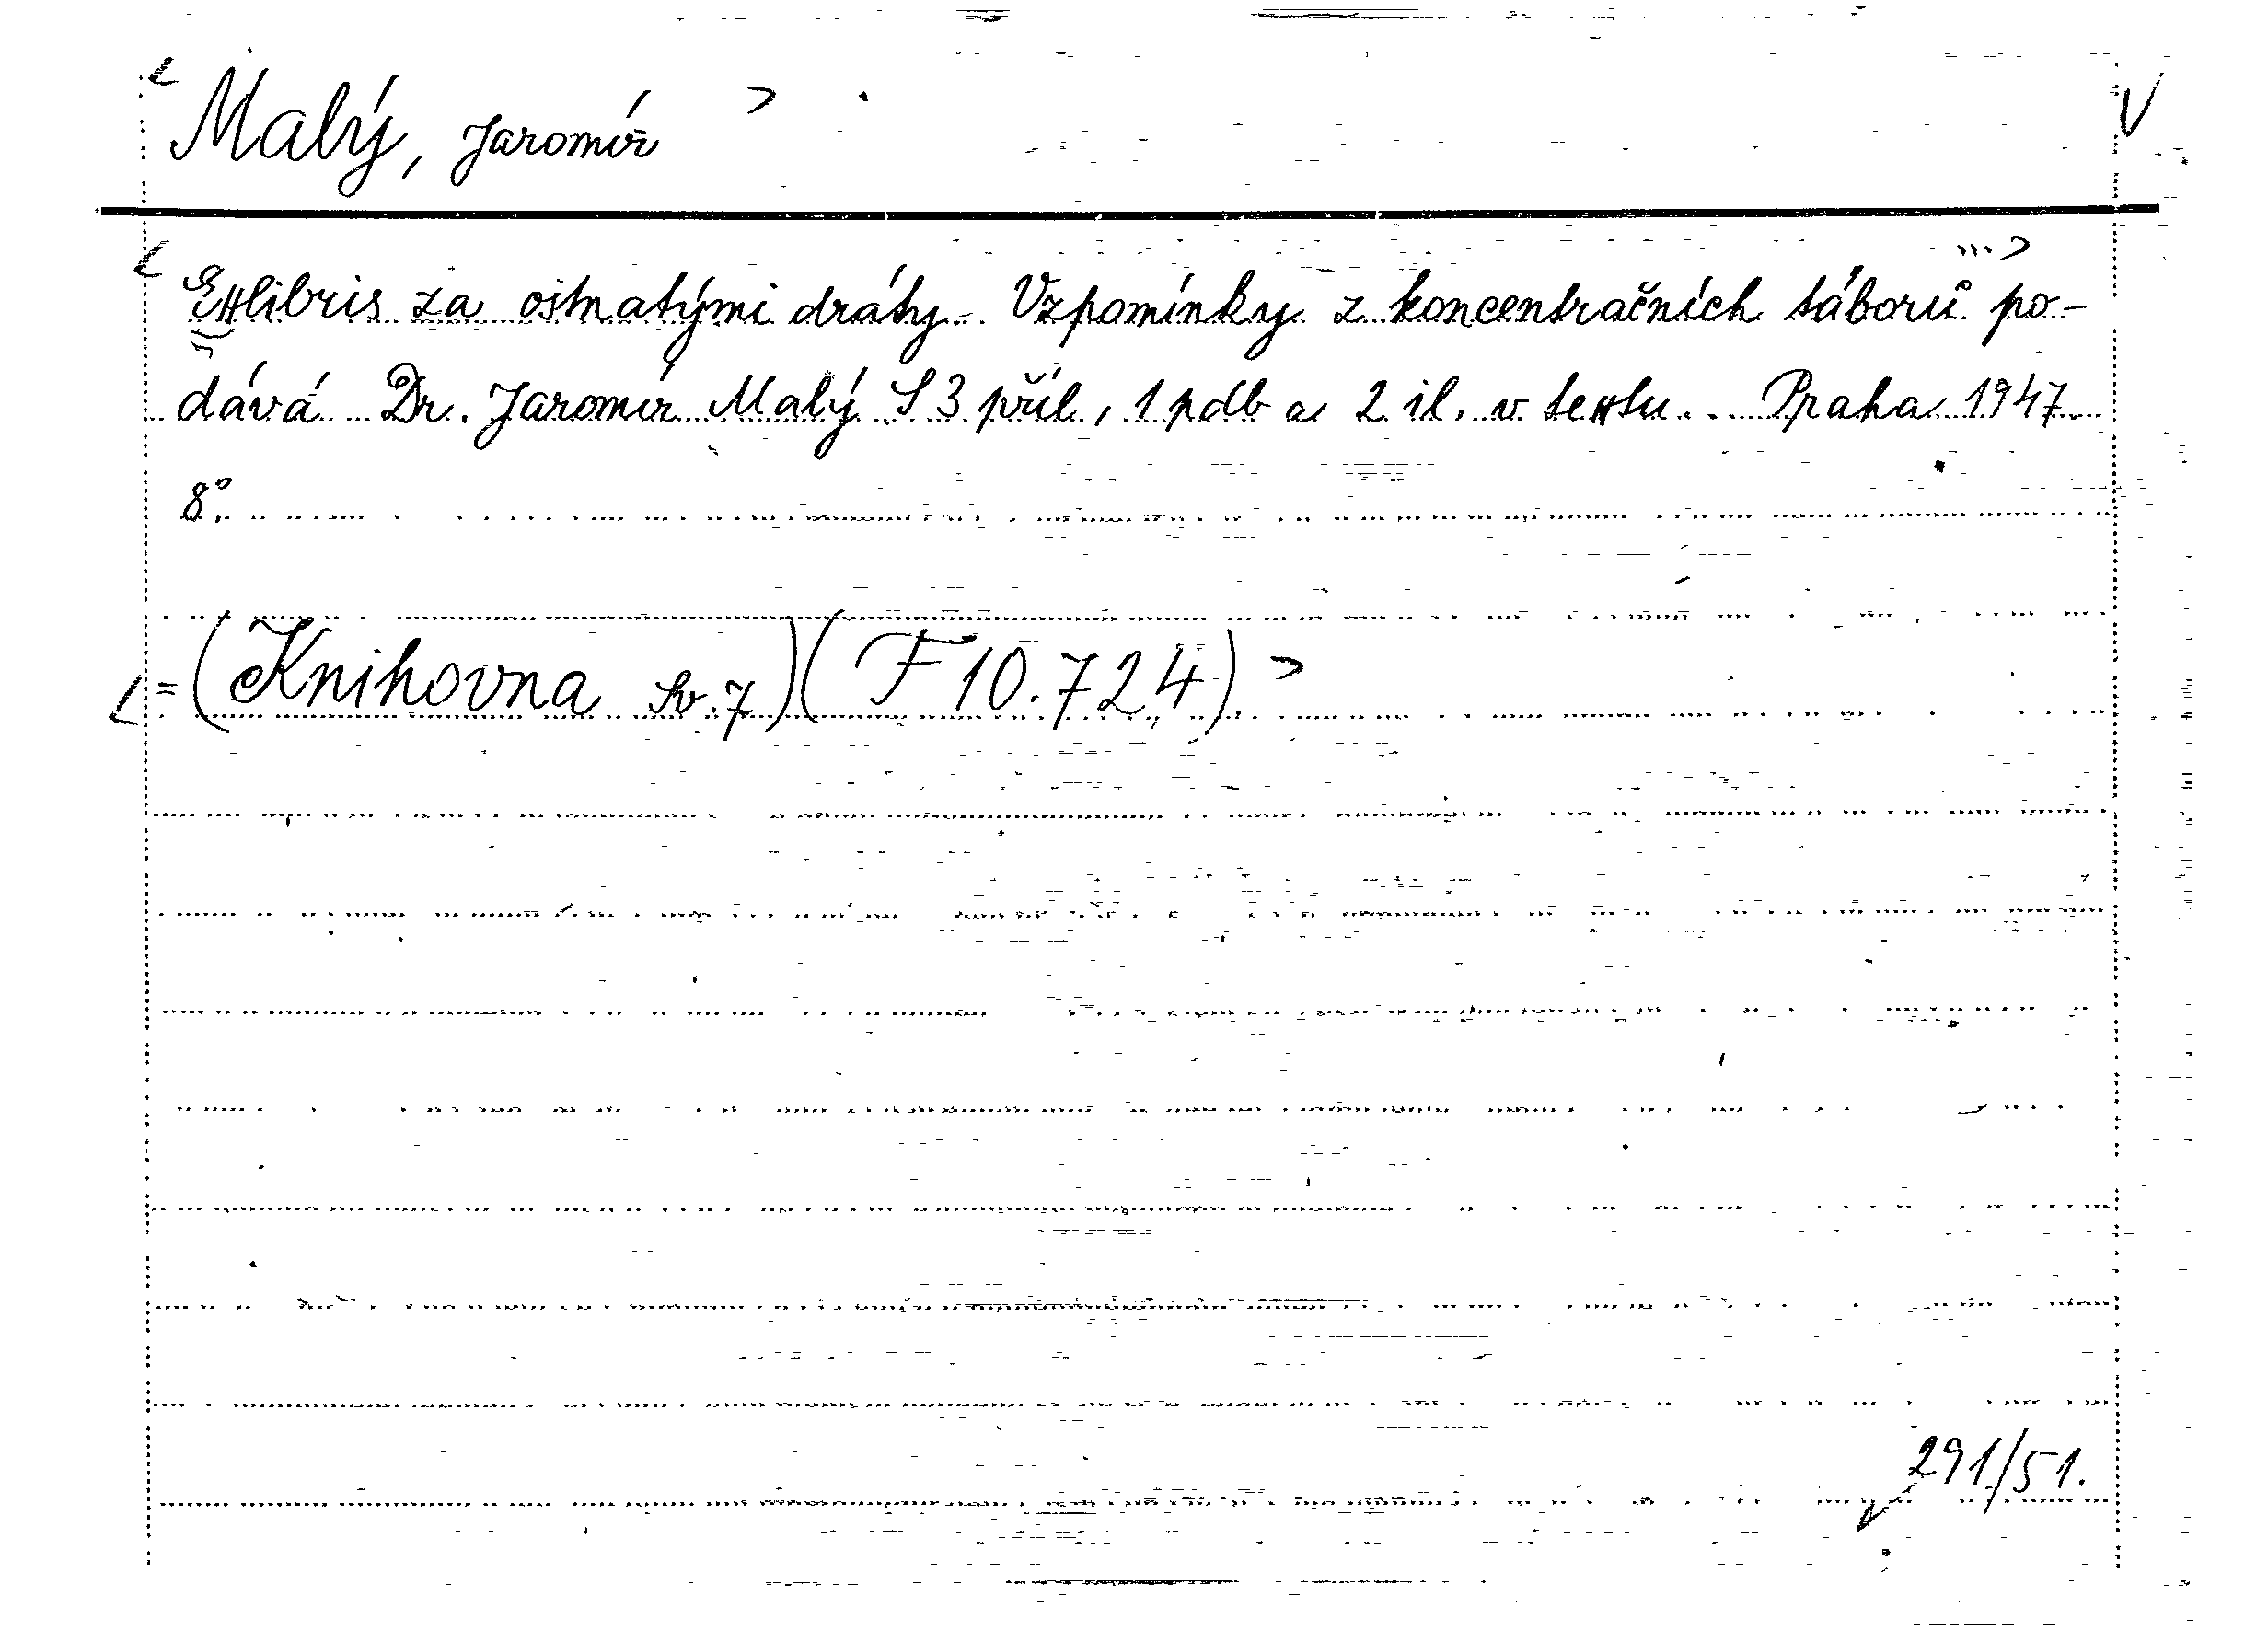 Malý, Jaromír
Exlibris za ostnatými dráty. Vzpomínky z koncentračních táborů po-
dává Dr. Jaromír Malý S 3 příl., 1 pdb a 2 il. v textu. . Praha 1947.
8°.
=(Knihovna sv.7)(F 10.724).
291/51.